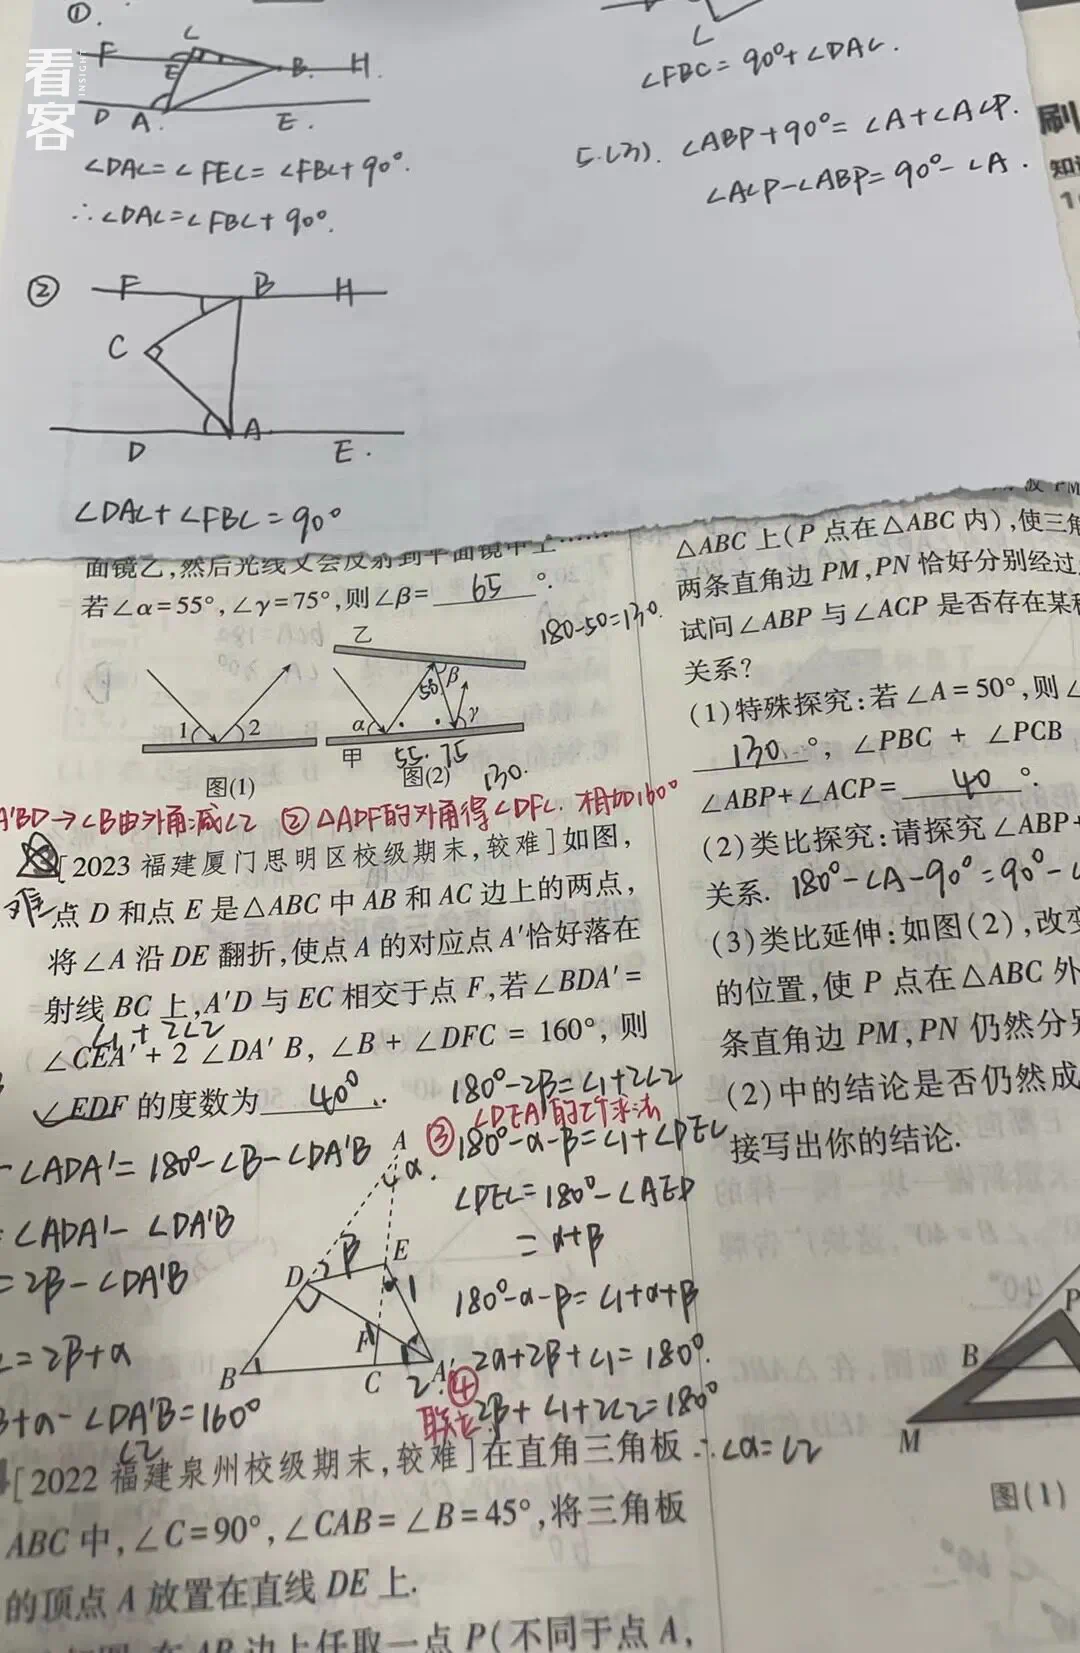 ①.
F C E B. H.
D A. E.
∠DAC=∠FEC=∠FBC+90°.
∴∠DAC=∠FBC+90°.
② F B H
C
D A E.
∠DAC+∠FBC=90°
看客
INSIGHT
L
∠FBC=90°+∠DAC.
5.(3). ∠ABP+90°=∠A+∠ACP.
∠ACP-∠ABP=90°-∠A.
刷
面镜乙,然后光线又会反射到平面镜甲上……
若∠α=55°,∠γ=75°,则∠β=65°.
180-50=130.
乙
1 2
α 50 β γ
甲 55. 75
图(1)
图(2)
130.
A'BD→∠B由外角减∠2 ②△ADF的外角得∠DFC.相加160°
难
[2023福建厦门思明区校级期末,较难]如图,
点D和点E是△ABC中AB和AC边上的两点,
将∠A沿DE翻折,使点A的对应点A'恰好落在
射线BC上,A'D与EC相交于点F,若∠BDA'=
∠1+2∠2
∠CEA'+2∠DA'B,∠B+∠DFC=160°,则
∠EDF的度数为40°.
180°-2β=∠1+2∠2
③∠DEA'的2个求法
180°-α-β=∠1+∠DEC
∠DEC=180°-∠AED
=α+β
180°-α-β=∠1+α+β
2α+2β+∠1=180°.
④
联立 2β+∠1+2∠2=180°
∴∠α=∠2
-∠ADA'=180°-∠B-∠DA'B
=∠ADA'-∠DA'B
=2β-∠DA'B
=2β+α
+α-∠DA'B=160°
∠2
A α
D β E 1
F
B C A' 2
[2022福建泉州校级期末,较难]在直角三角板
ABC中,∠C=90°,∠CAB=∠B=45°,将三角板
的顶点A放置在直线DE上.
AB边上任取一点P(不同于点A,
△ABC上(P点在△ABC内),使三角
两条直角边PM,PN恰好分别经过
试问∠ABP与∠ACP是否存在某种
关系?
(1)特殊探究:若∠A=50°,则∠
130°,∠PBC+∠PCB
∠ABP+∠ACP=40°.
(2)类比探究:请探究∠ABP+
关系.180°-∠A-90°=90°-∠
(3)类比延伸:如图(2),改变
的位置,使P点在△ABC外
条直角边PM,PN仍然分别
(2)中的结论是否仍然成
接写出你的结论.
P
B
M
图(1)